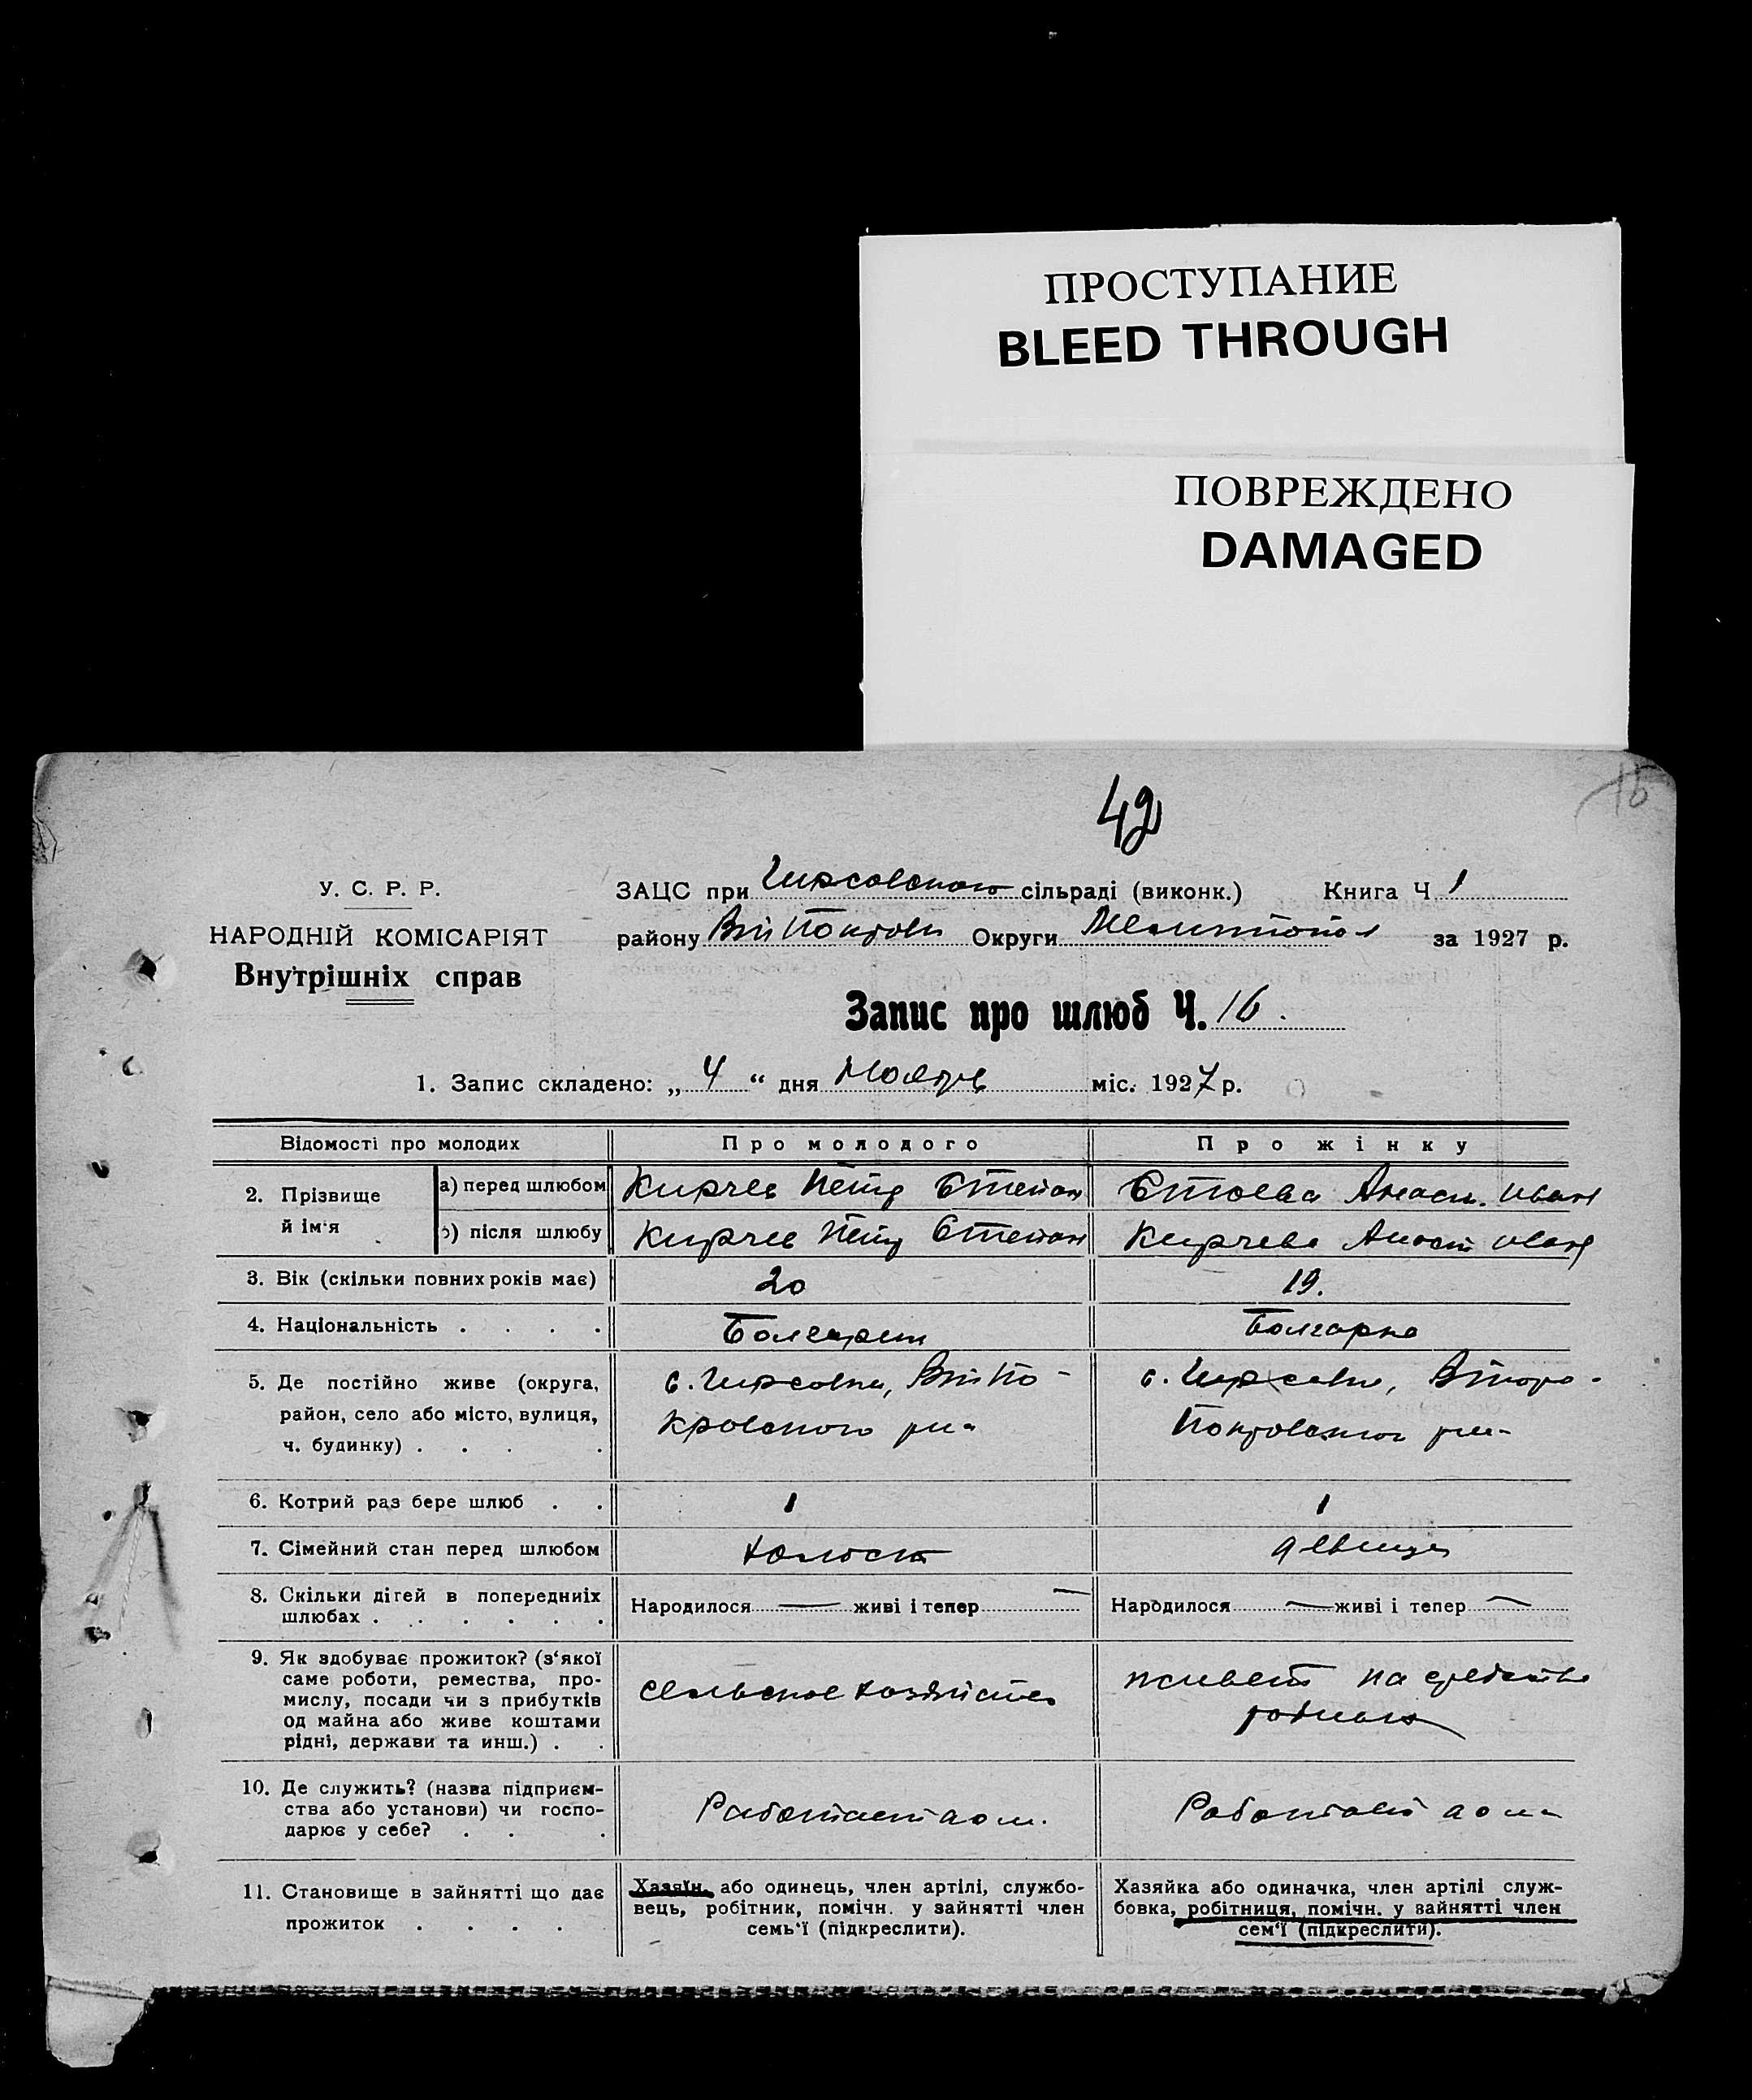 ПРОСТУПАНИЕ
BLEED THROUGH
ПОВРЕЖДЕНО
DAMAGED
42
16
У. С. Р. Р.
НАРОДНІЙ КОМІСАРІЯТ
Внутрішніх справ
ЗАЦС при Гирсовском сільраді (виконк.) Книга Ч 1
району Вт Покров Округи Мелитопол за 1927 р.
Запис про шлюб Ч. 16.
1. Запис складено: „ 4 “ дня Ноября міс. 1927 р.
Відомості про молодих Про молодого Про жінку
2. Прізвище й ім‘я
а) перед шлюбом Кирчев Петр Степан Стоева Анаст. Иван
б) після шлюбу Кирчев Петр Степан Кирчева Анаст Иван
3. Вік (скільки повних років має) 20 19.
4. Національність . . . . Болгарин Болгарка
5. Де постійно живе (округа, район, село або місто, вулиця, ч. будинку) . . .
с. Гирсовки, Вт По-
кровского р-на
с. Гирсовки, Второ-
Покровского р-на
6. Котрий раз бере шлюб . . 1 1
7. Сімейний стан перед шлюбом холост девица
8. Скільки дітей в попередніх шлюбах . . . . . .
Народилося — живі і тепер —
Народилося — живі і тепер —
9. Як здобуває прожиток? (з‘якої саме роботи, ремества, промислу, посади чи з прибутків од майна або живе коштами рідні, держави та инш.) . .
сельское хозяйство
живет на средства
родных
10. Де служить? (назва підприємства або установи) чи господарює у себе? . . .
Работает дом.
Работает дома
11. Становище в зайнятті що дає прожиток . . . .
Хазяїн, або одинець, член артілі, службо-
вець, робітник, помічн. у зайнятті член
семь‘ї (підкреслити).
Хазяйка або одиначка, член артілі служ-
бовка, робітниця, помічн. у зайнятті член
сем‘ї (підкреслити).